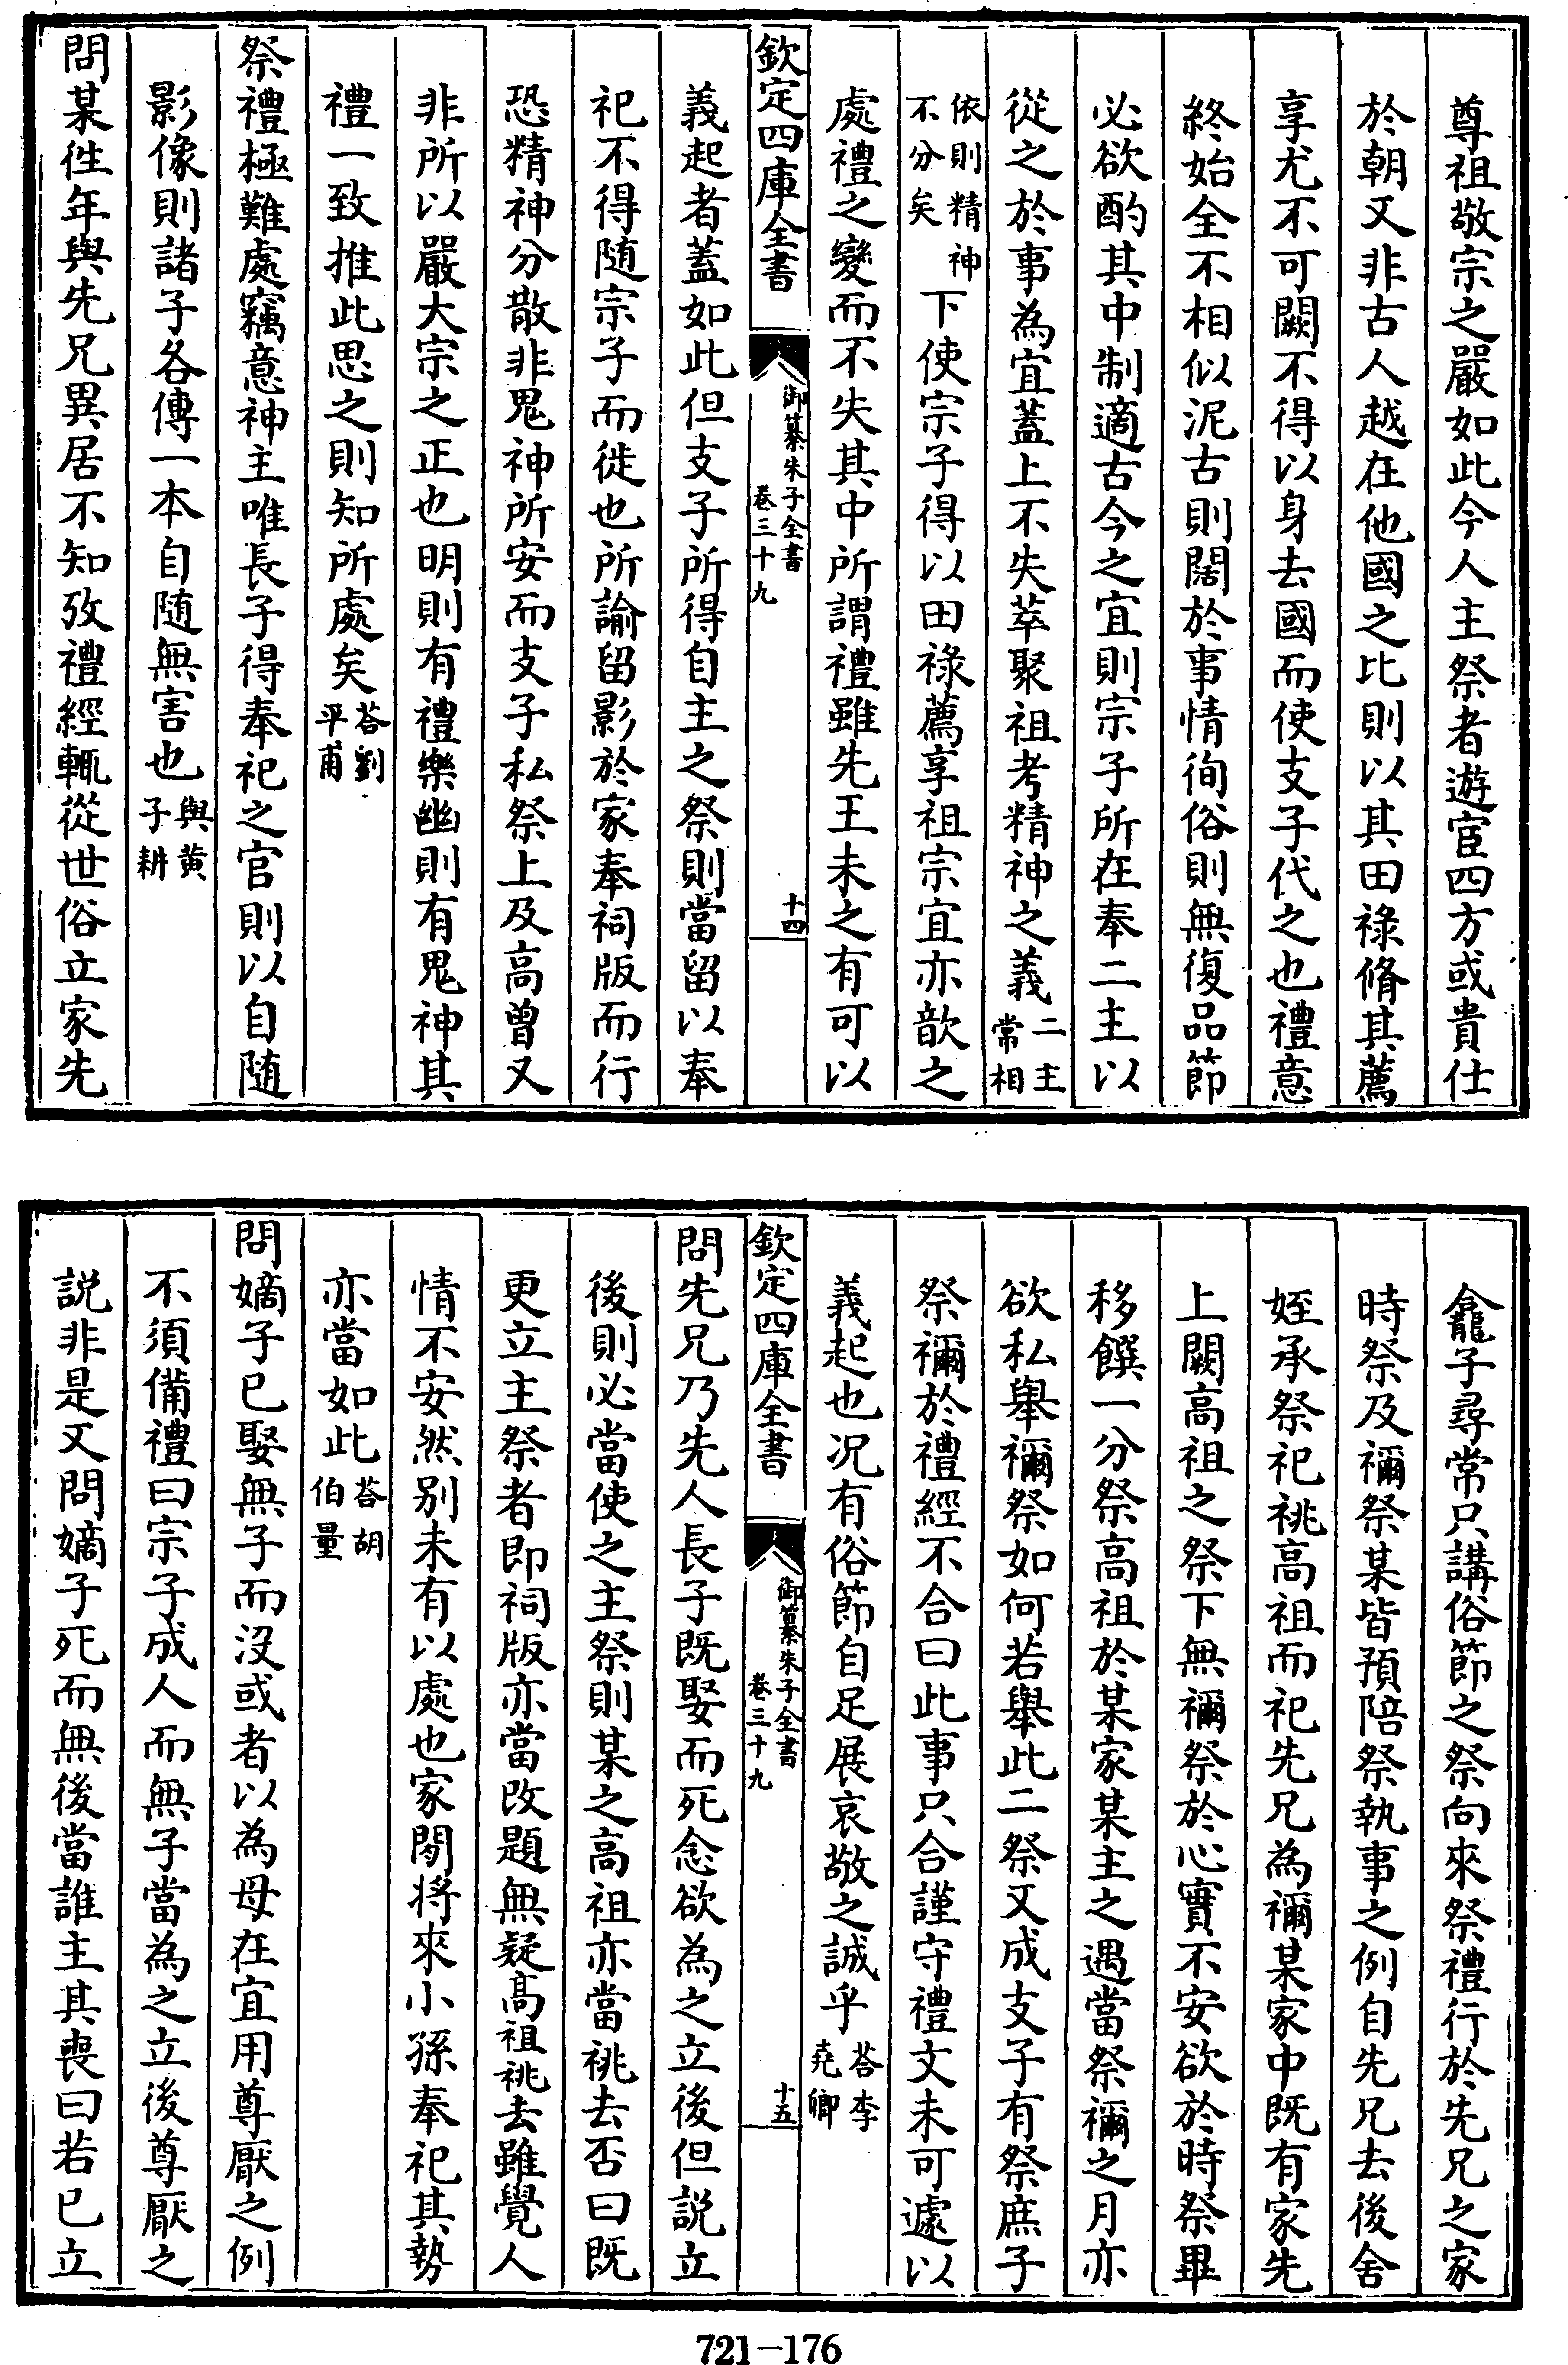 尊祖敬宗之嚴如此今人主祭者遊宦四方或貴仕
於朝又非古人越在他國之比則以其田祿脩其薦
享尤不可闕不得以身去國而使支子代之也禮意
終始全不相似泥古則闊於事情徇俗則無復品節
必欲酌其中制適古今之宜則宗子所在奉二主以
從之於事為宜蓋上不失萃聚祖考精神之義二主常相
依則精神不分矣下使宗子得以田祿薦享祖宗宜亦歆之
處禮之變而不失其中所謂禮雖先王未之有可以
欽定四庫全書 御纂朱子全書 卷三十九 十四
義起者蓋如此但支子所得自主之祭則當留以奉
祀不得随宗子而徙也所諭留影於家奉祠版而行
恐精神分散非鬼神所安而支子私祭上及高曾又
非所以嚴大宗之正也明則有禮樂幽則有鬼神其
禮一致推此思之則知所處矣荅劉平甫
祭禮極難處竊意神主唯長子得奉祀之官則以自随
影像則諸子各傳一本自随無害也與黄子耕
問某徃年與先兄異居不知攷禮經輒從世俗立家先
龕子尋常只講俗節之祭向來祭禮行於先兄之家
時祭及禰祭某皆預陪祭執事之例自先兄去後舍
姪承祭祀祧高祖而祀先兄為禰某家中既有家先
上闕高祖之祭下無禰祭於心實不安欲於時祭畢
移饌一分祭高祖於某家某主之遇當祭禰之月亦
欲私舉禰祭如何若舉此二祭又成支子有祭庶子
祭禰於禮經不合曰此事只合謹守禮文未可遽以
義起也况有俗節自足展哀敬之誠乎荅李堯卿
欽定四庫全書 御纂朱子全書 卷三十九 十五
問先兄乃先人長子既娶而死念欲為之立後但説立
後則必當使之主祭則某之高祖亦當祧去否曰既
更立主祭者即祠版亦當改題無疑高祖祧去雖覺人
情不安然别未有以處也家閒将來小孫奉祀其勢
亦當如此荅胡伯量
問嫡子已娶無子而没或者以為母在宜用尊厭之例
不須備禮曰宗子成人而無子當為之立後尊厭之
説非是又問嫡子死而無後當誰主其喪曰若已立
721-176